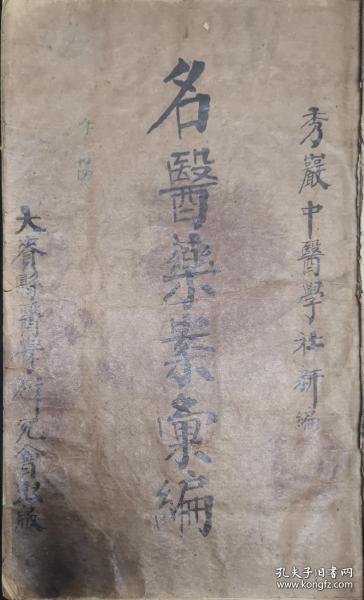 秀巖中醫學社新編
名醫藥案彙編
大賚縣醫學研究會出版
孔夫子旧书网
www.kongfz.com